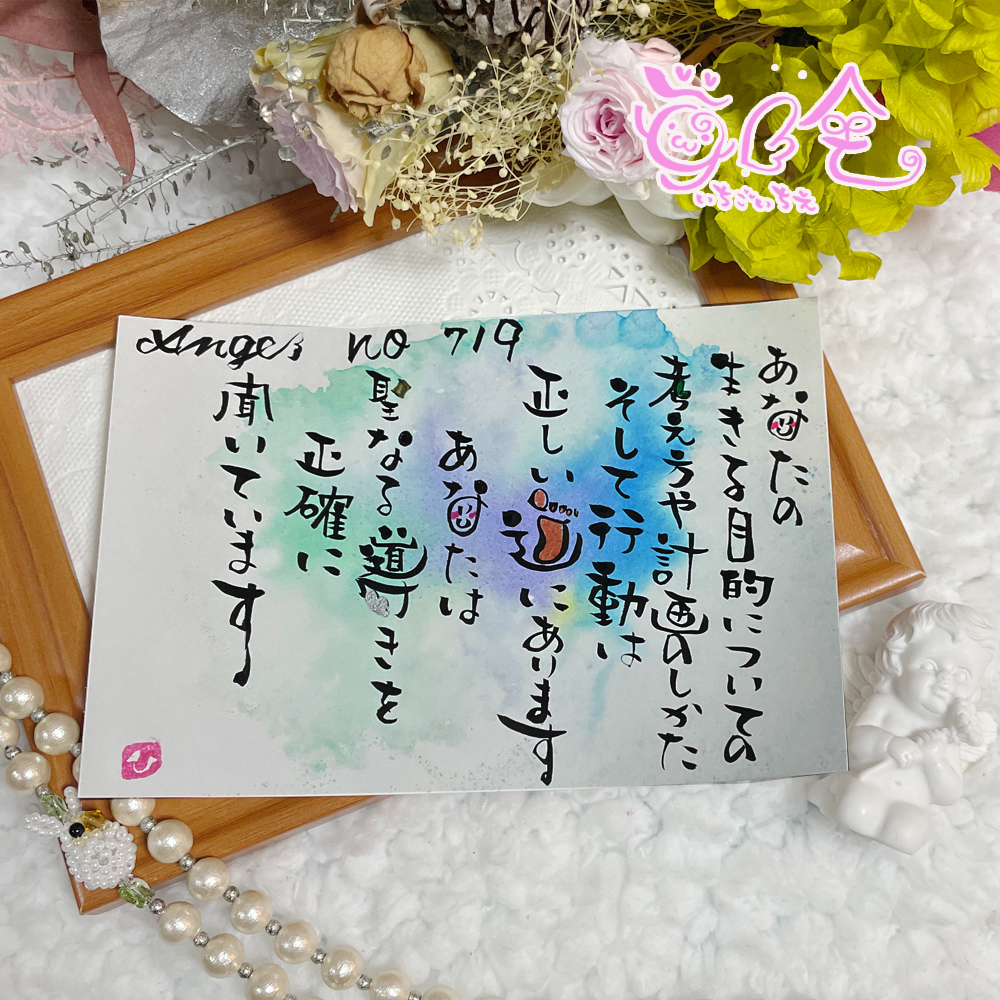 Angel no 719
あなたの
生きる目的についての
考え方や計画のしかた
そして行動は
正しい道にあります
あなたは
聖なる導きを
正確に
聞いています
いちごいちえ